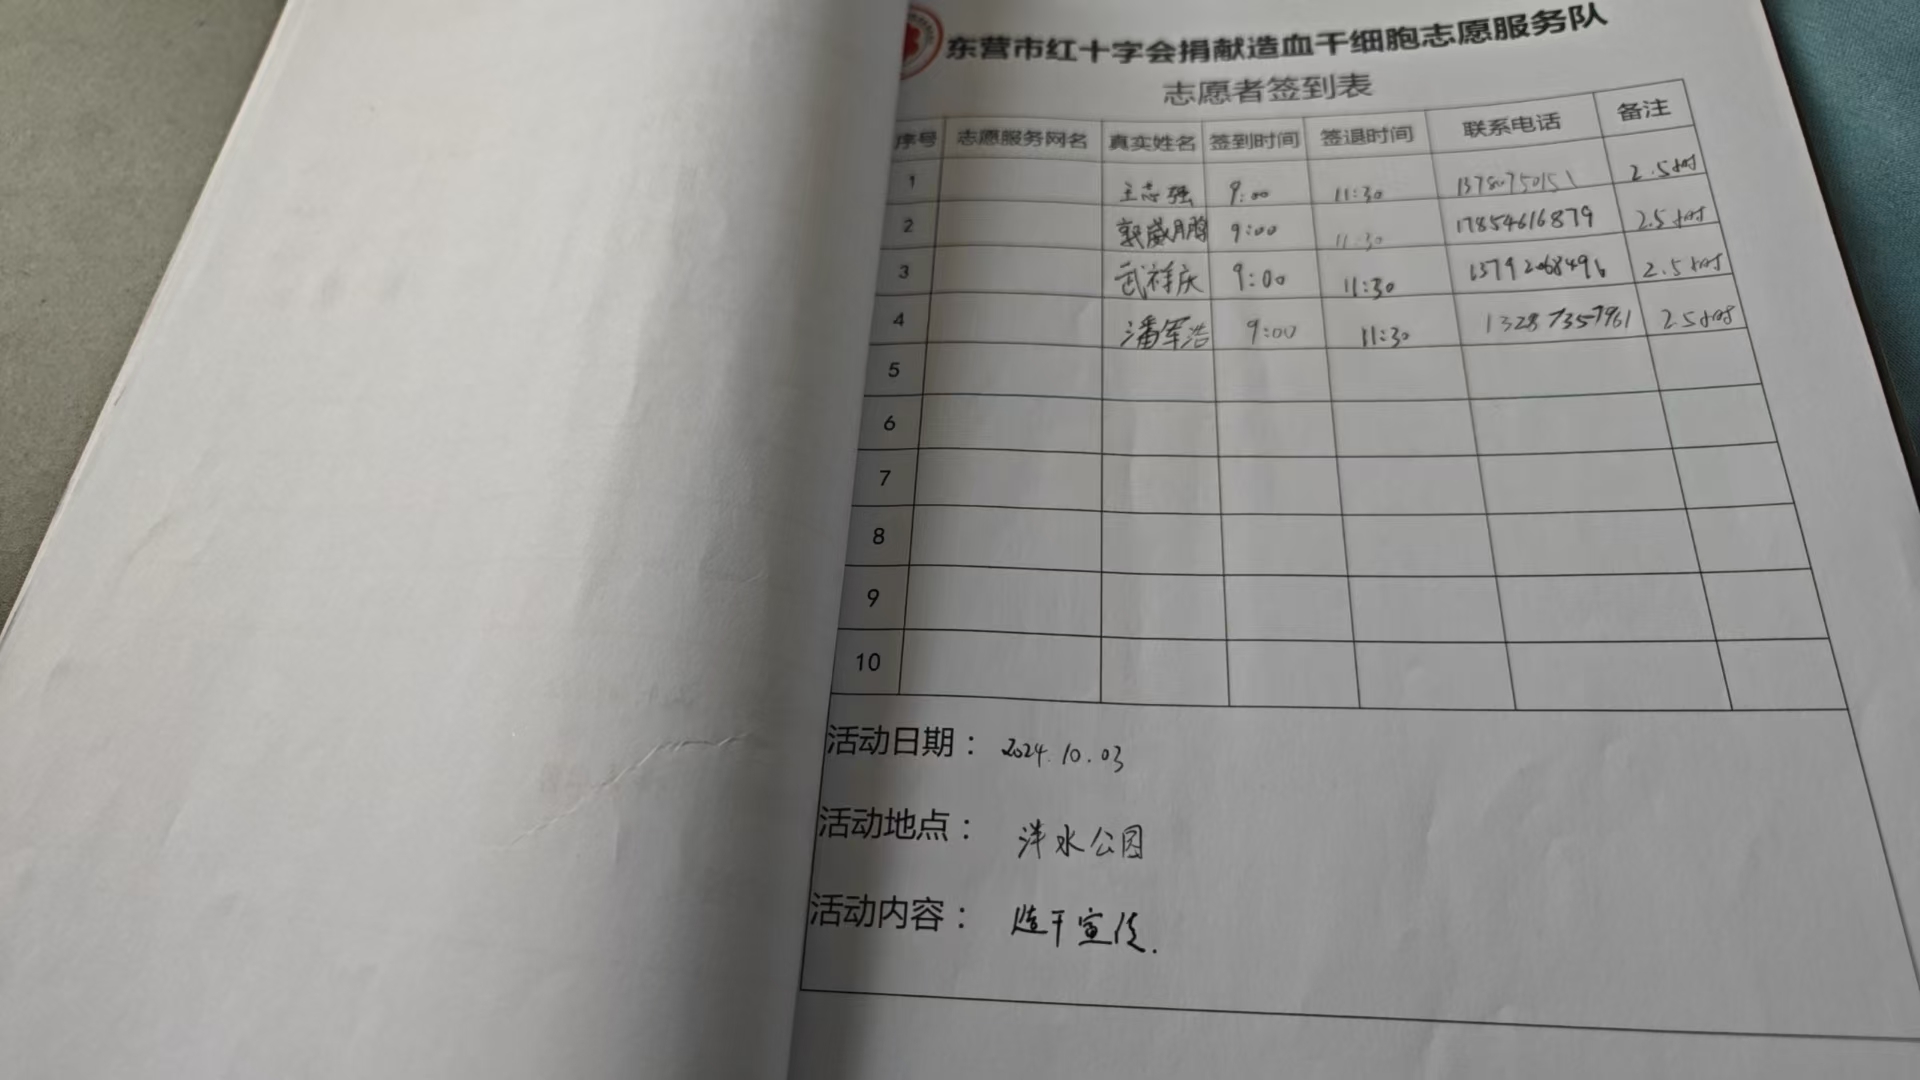 东营市红十字会捐献造血干细胞志愿服务队
志愿者签到表
序号 志愿服务网名 真实姓名 签到时间 签退时间 联系电话 备注
1 王志强 9:00 11:30 13780750151 2.5小时
2 郭威鹏 9:00 11:30 17854616879 2.5小时
3 武祥庆 9:00 11:30 13792068496 2.5小时
4 潘军浩 9:00 11:30 13287357961 2.5小时
5
6
7
8
9
10
活动日期： 2024.10.03
活动地点： 洋水公园
活动内容： 造干宣传.